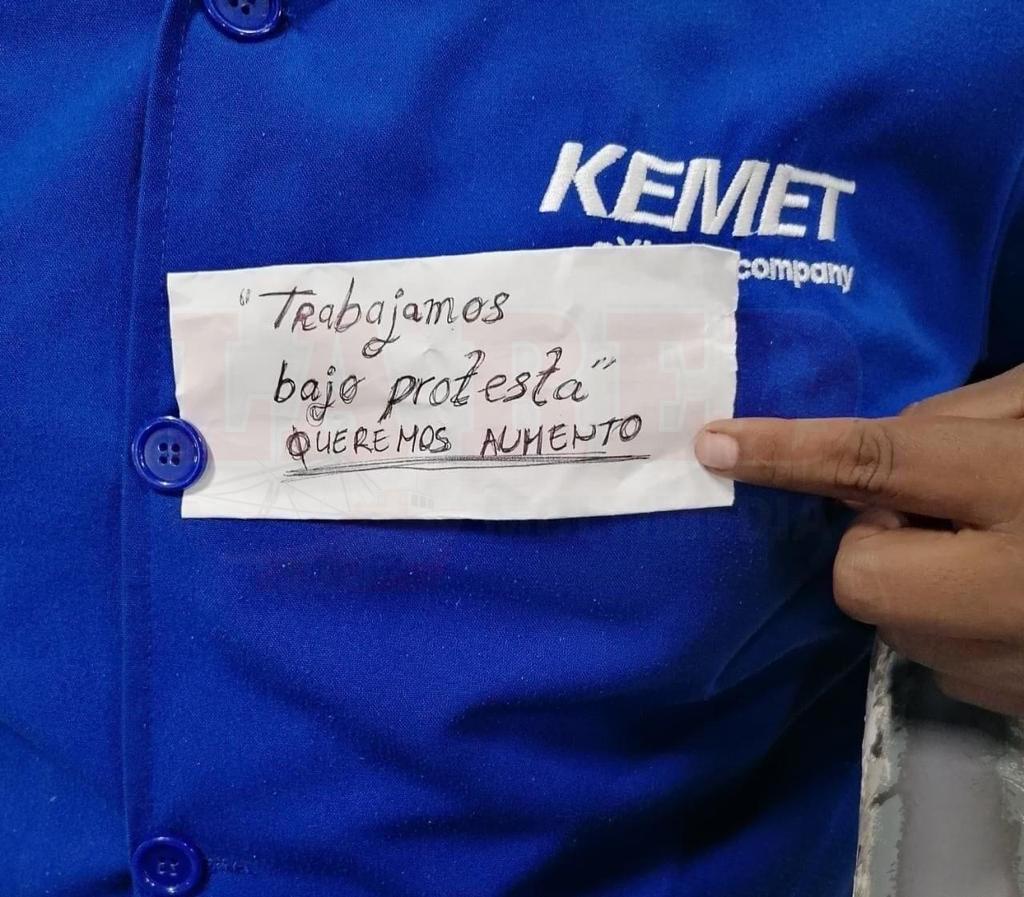 KEMET
company
"Trabajamos
bajo protesta"
QUEREMOS AUMENTO
LA RED